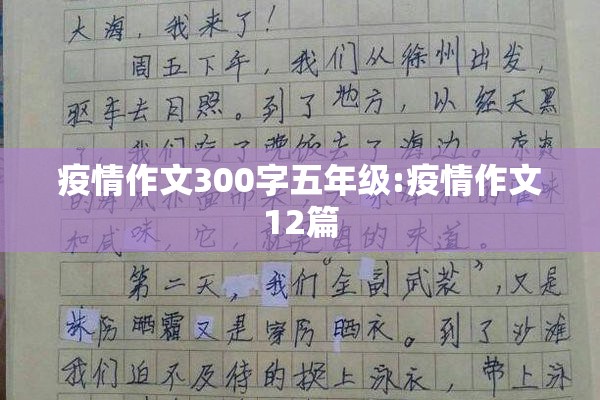 大海，我来了！
周五下午，我们从徐州出发，
驱车去日照。到了地方，以经天黑
我们吃了晚饭去了海边。凉爽
疫情作文300字五年级:疫情作文
12篇
和咸味，它，就是海的味道。
第二天，我们“全副武装”，又是
抹防晒霜又是穿防晒衣。到了沙滩
我们迫不及待的换上泳衣，带上泳